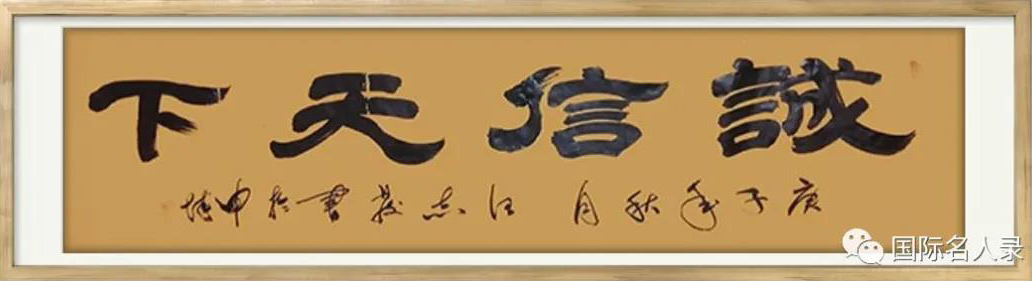 誠信天下
庚子年秋月汪志書於申城
国际名人录